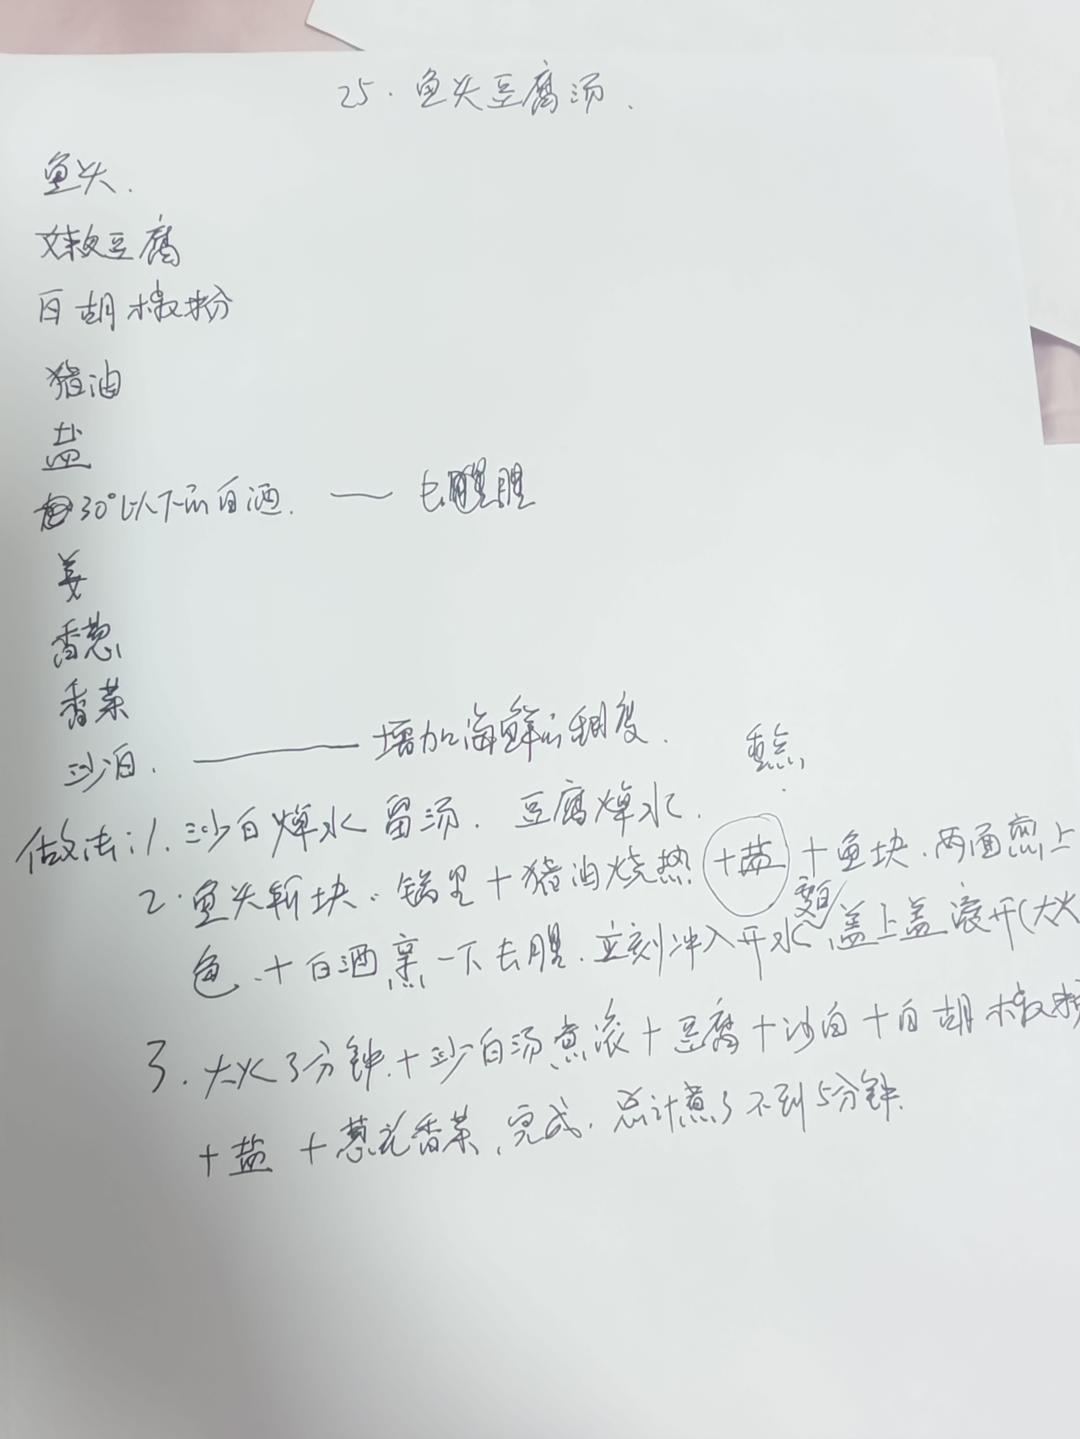 25.鱼头豆腐汤.
鱼头.
嫩豆腐
白胡椒粉
猪油
盐
30°以下的白酒. —— 去腥
姜
香葱
香菜
沙白. ———— 增加海鲜的稠度.
重点
做法:1.沙白焯水留汤.豆腐焯水.
2.鱼头斩块.锅里+猪油烧热 +盐 +鱼块.两面煎上
色.+白酒烹一下去腥.立刻冲入开水,盖上盖滚开(大火
3.大火3分钟.+沙白汤煮滚+豆腐+沙白+白胡椒粉
+盐 +葱花香菜,完成.总计煮了不到5分钟.